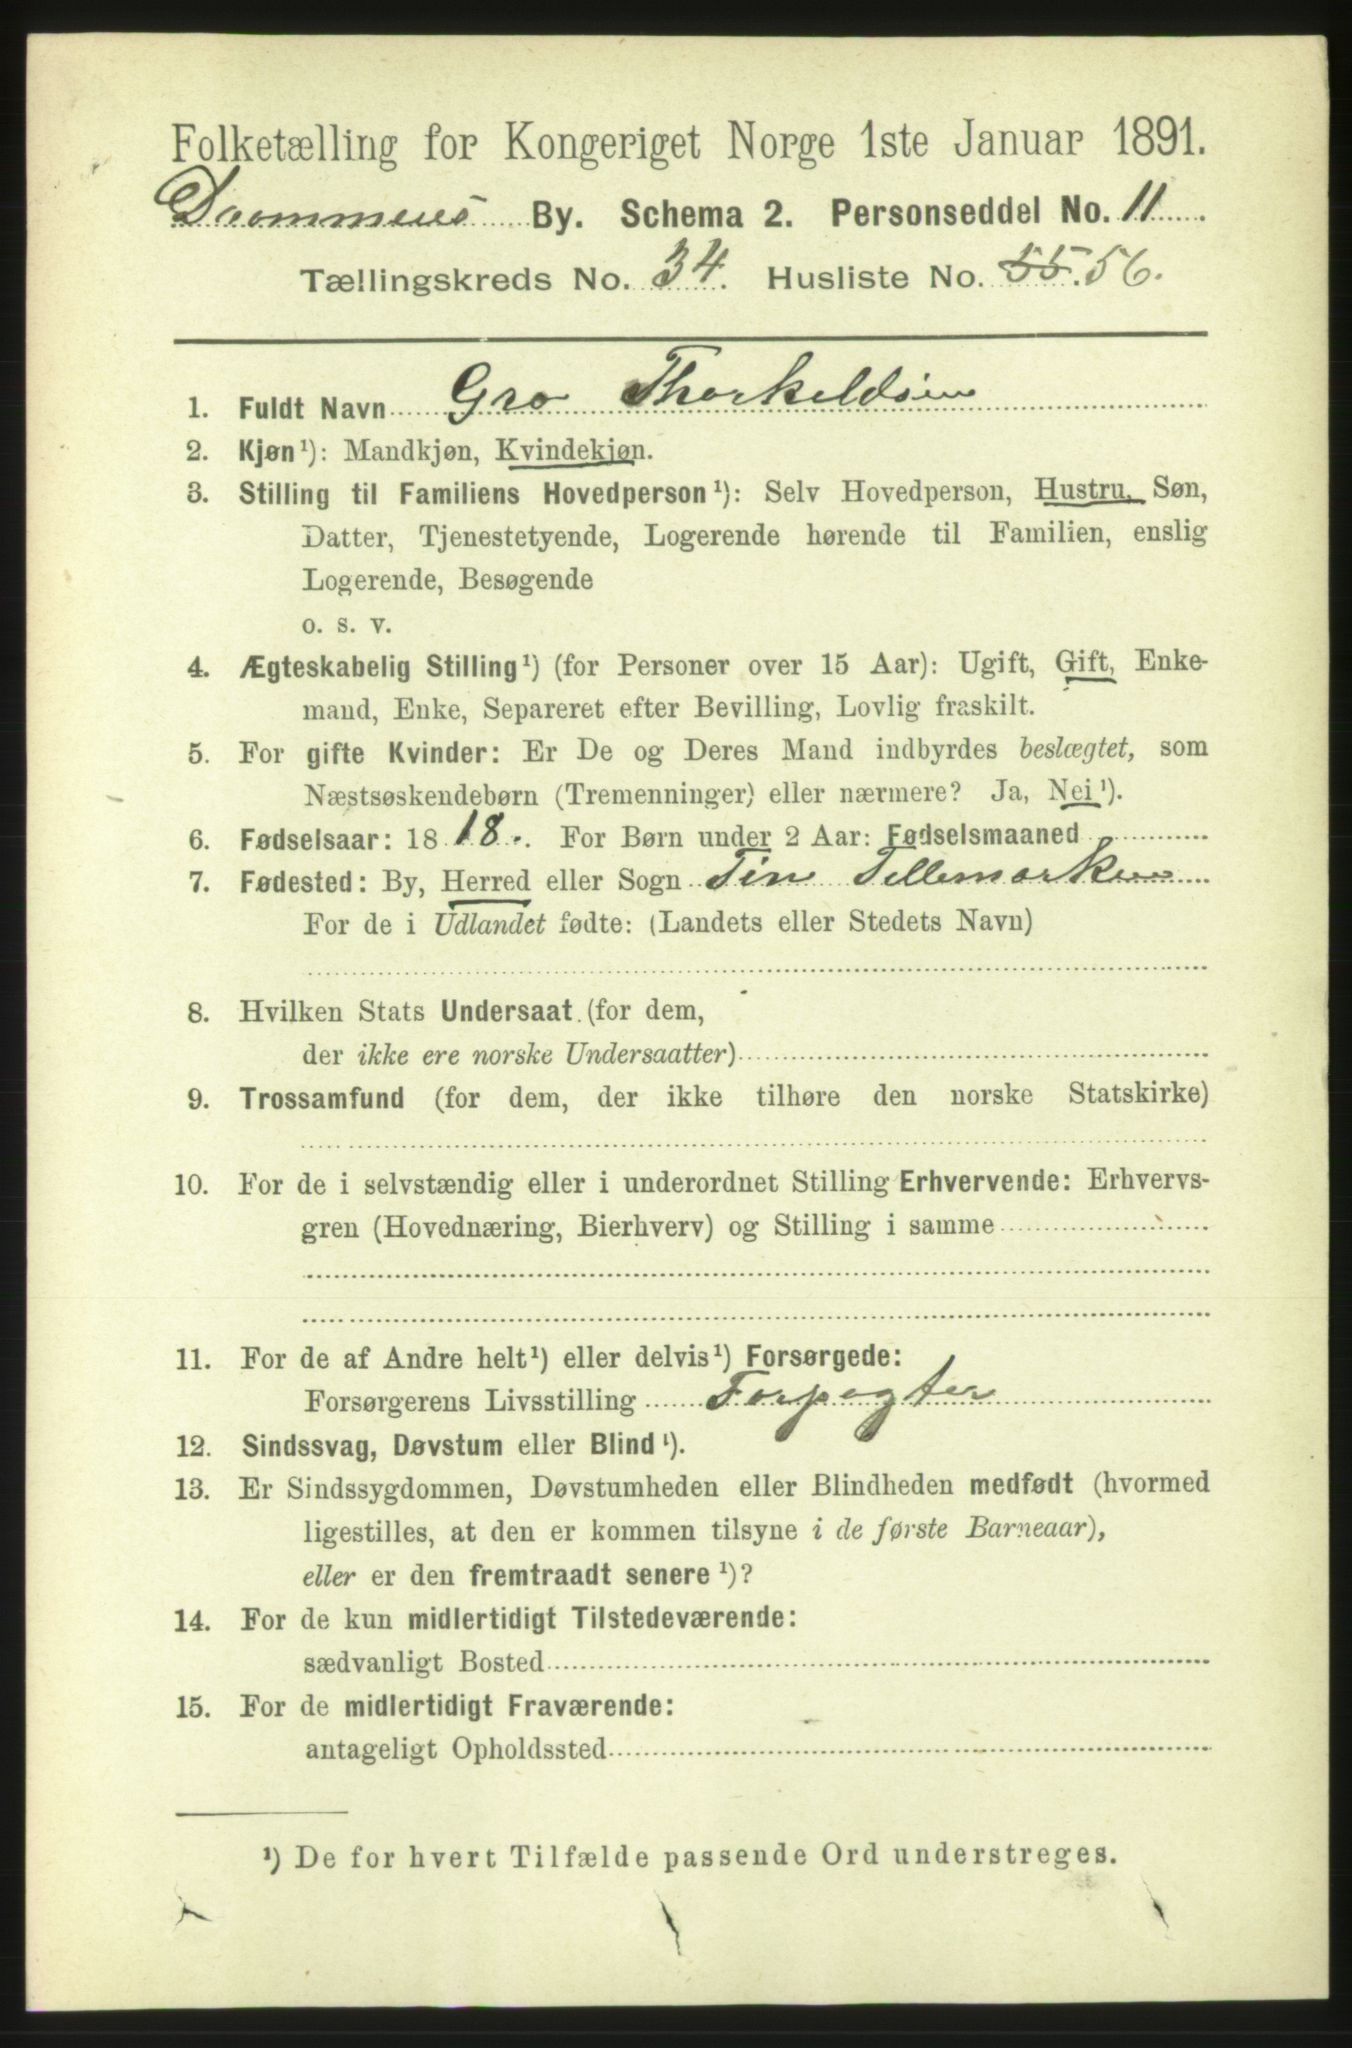 Folketælling for Kongeriget Norge 1ste Januar 1891.
Drammens By. Schema 2. Personseddel No. 11
Tællingskreds No. 34. Husliste No. 55. 56.
1. Fuldt Navn Gro Thorkeldsen
2. Kjøn¹): Mandkjøn, Kvindekjøn.
3. Stilling til Familiens Hovedperson¹): Selv Hovedperson, Hustru, Søn,
Datter, Tjenestetyende, Logerende hørende til Familien, enslig
Logerende, Besøgende
o. s. v.
4. Ægteskabelig Stilling¹) (for Personer over 15 Aar): Ugift, Gift, Enke-
mand, Enke, Separeret efter Bevilling, Lovlig fraskilt.
5. For gifte Kvinder: Er De og Deres Mand indbyrdes beslægtet, som
Næstsøskendebørn (Tremenninger) eller nærmere? Ja, Nei¹).
6. Fødselsaar: 18 18. For Børn under 2 Aar: Fødselsmaaned
7. Fødested: By, Herred eller Sogn Tin Tellemarken
For de i Udlandet fødte: (Landets eller Stedets Navn)
8. Hvilken Stats Undersaat (for dem,
der ikke ere norske Undersaatter)
9. Trossamfund (for dem, der ikke tilhøre den norske Statskirke)
10. For de i selvstændig eller i underordnet Stilling Erhvervende: Erhvervs-
gren (Hovednæring, Bierhverv) og Stilling i samme
11. For de af Andre helt¹) eller delvis¹) Forsørgede:
Forsørgerens Livsstilling Forpagter
12. Sindssvag, Døvstum eller Blind¹).
13. Er Sindssygdommen, Døvstumheden eller Blindheden medfødt (hvormed
ligestilles, at den er kommen tilsyne i de første Barneaar),
eller er den fremtraadt senere¹)?
14. For de kun midlertidigt Tilstedeværende:
sædvanligt Bosted
15. For de midlertidigt Fraværende:
antageligt Opholdssted
¹) De for hvert Tilfælde passende Ord understreges.